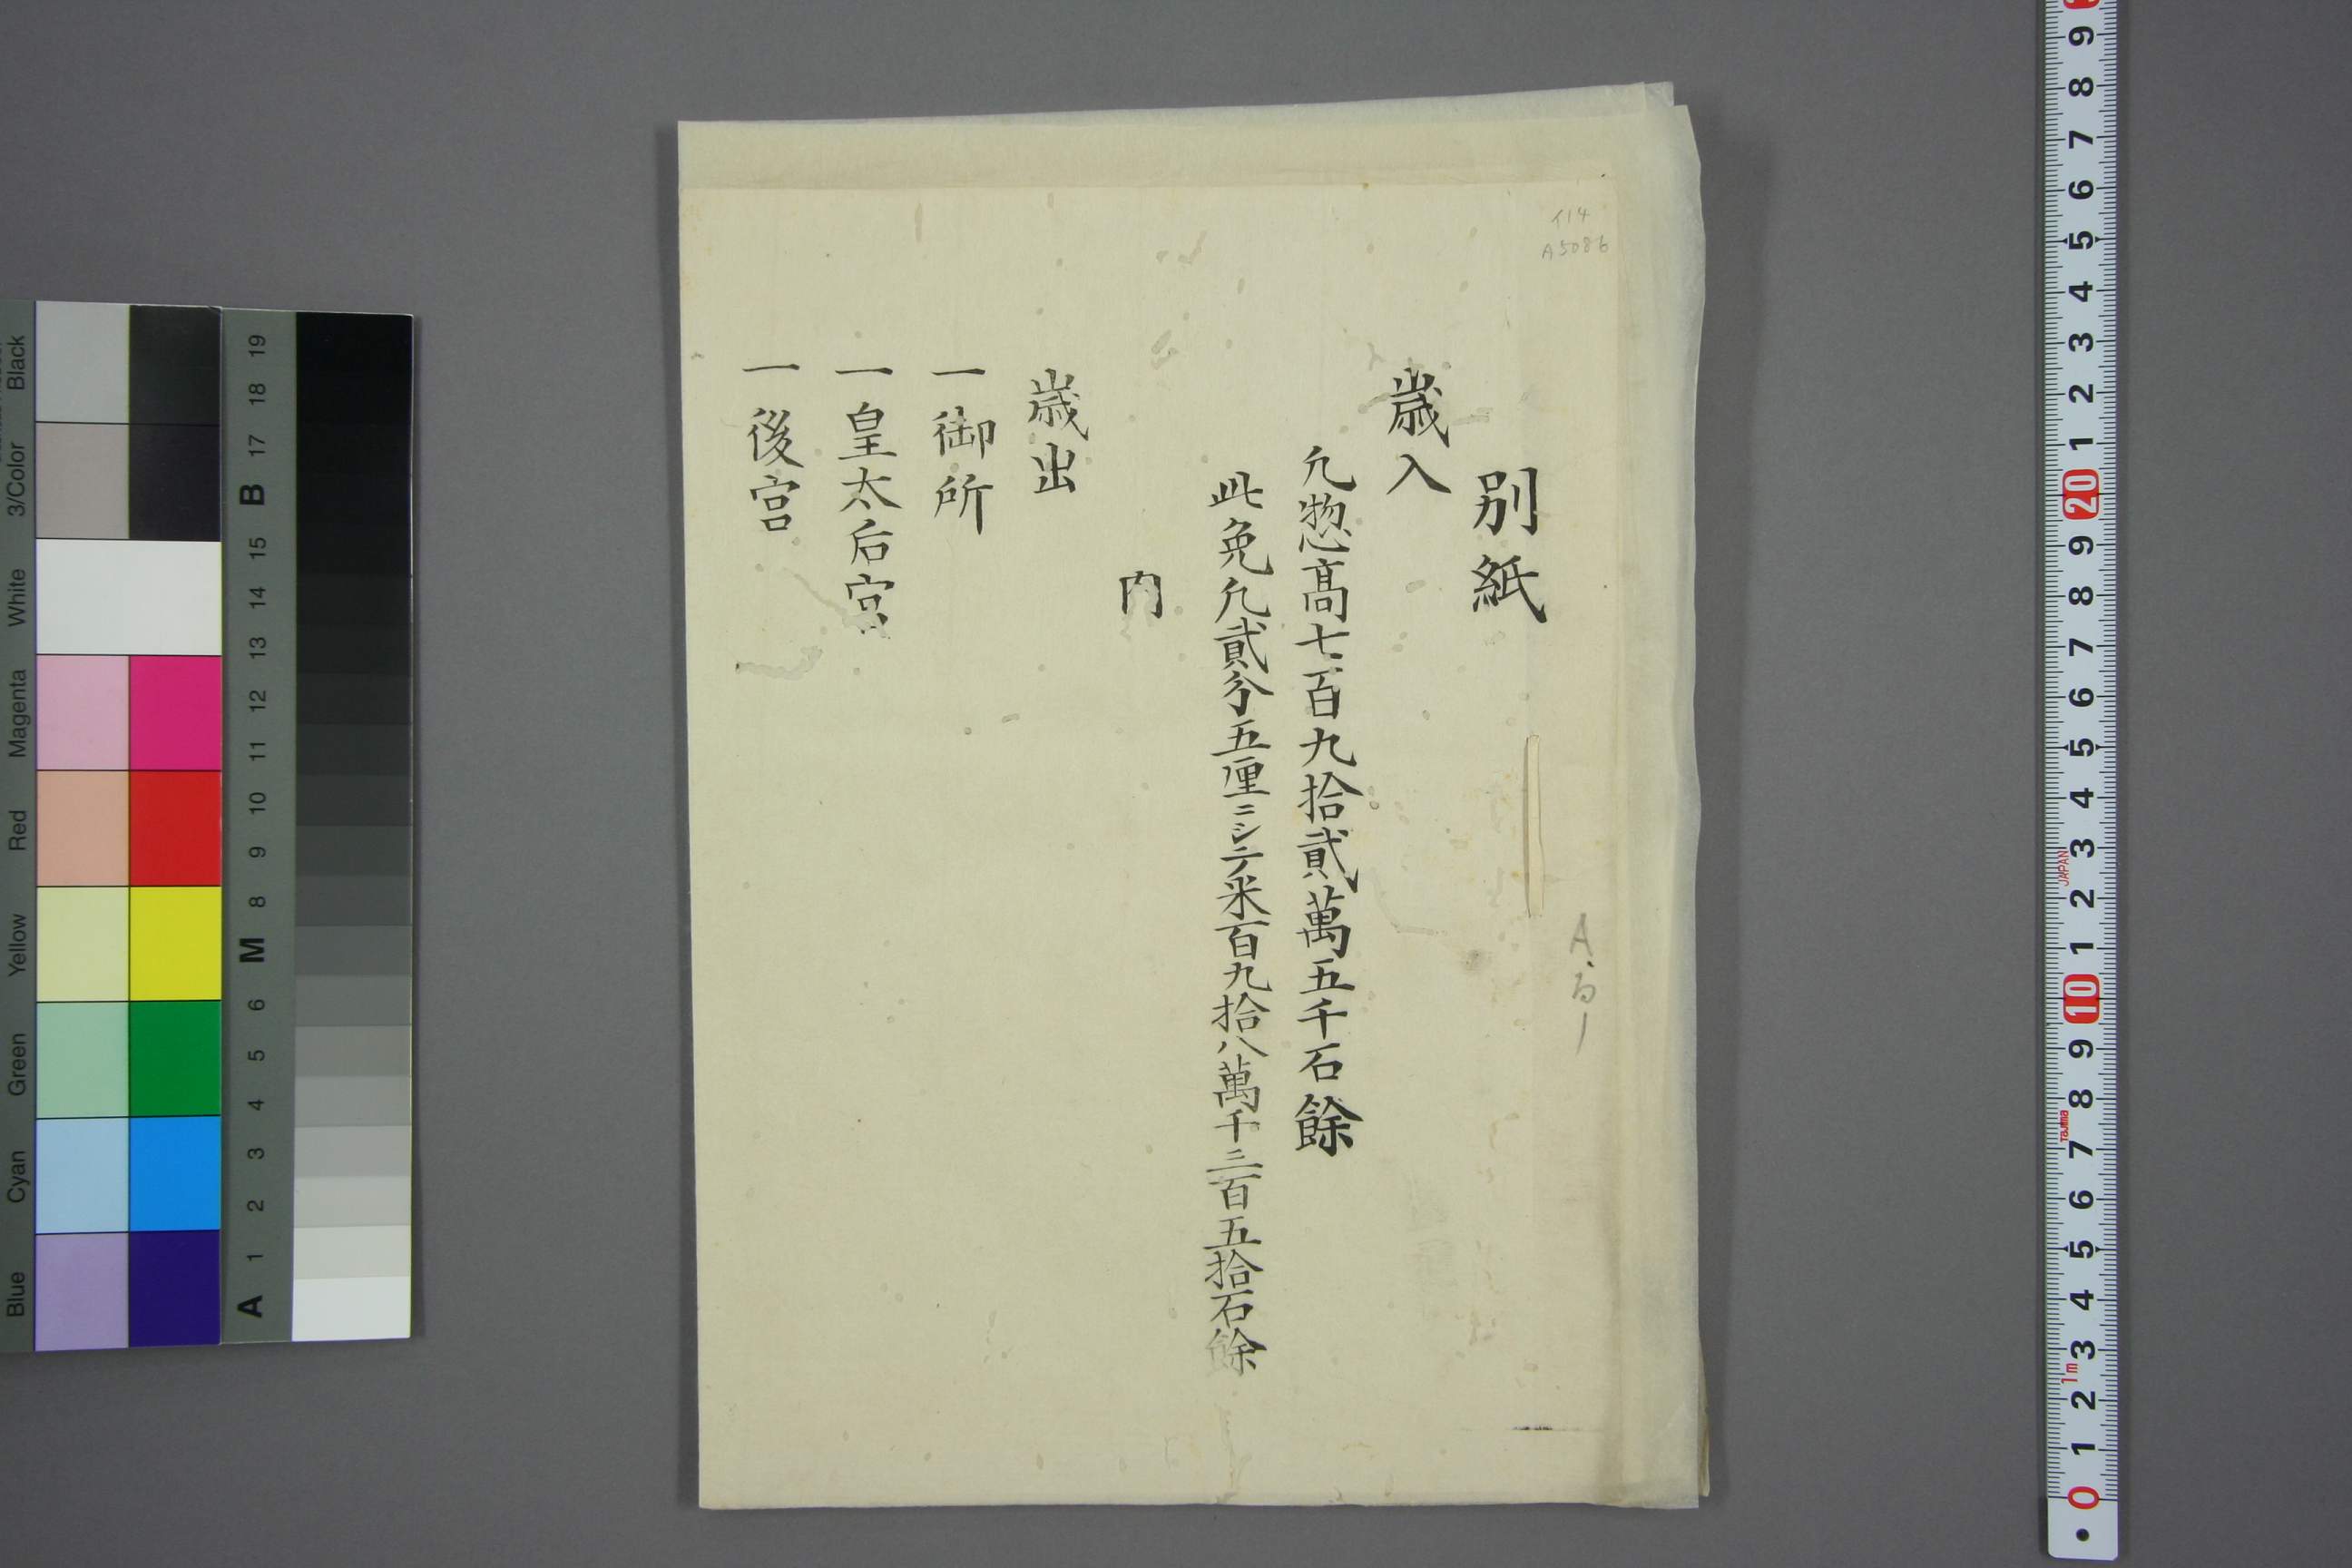 別紙
歳入
凢惣髙七百九拾貳萬五千石餘
此免凢貳分五厘ニシテ米百九拾八萬千三百五拾石餘
内
歳出
一御所
一皇太后宮
一後宮
イ14
A5086
Black
3/Color
White
Magenta
Red
Yellow
Green
Cyan
Blue
19 18 17 B 15 14 13 12 11 10 9 8 M 6 5 4 3 2 1 A
9 8 7 6 5 4 3 2 1 20 9 8 7 6 5 4 3 2 1 10 9 8 7 6 5 4 3 2 1 0
JAPAN
Tajima
1m